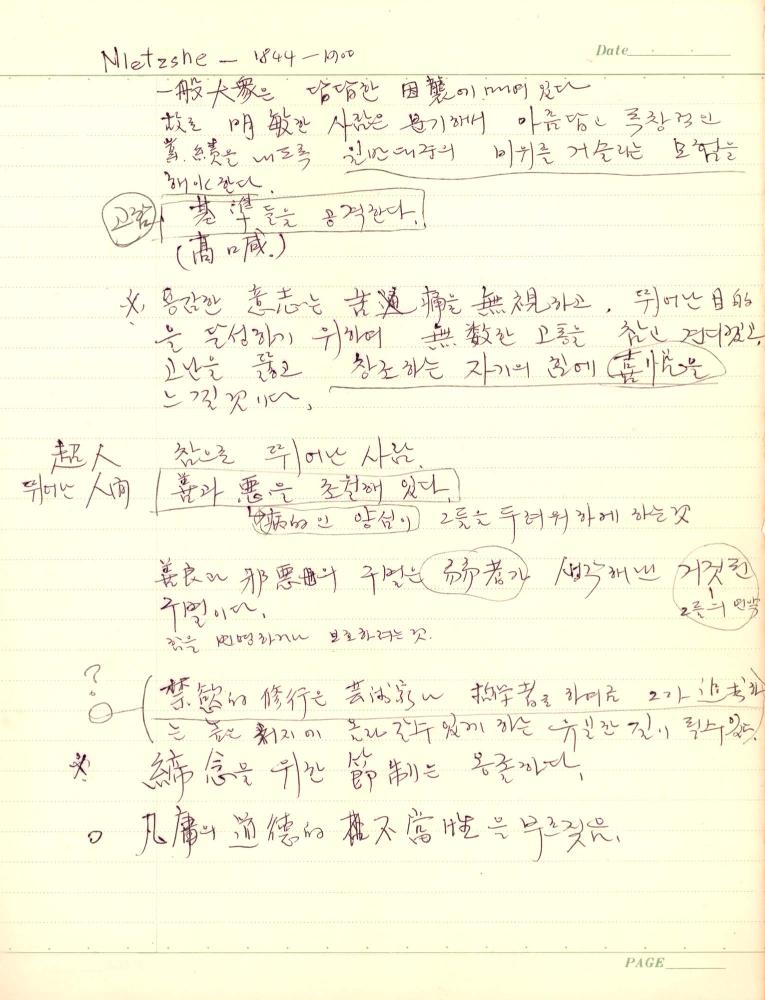 Date
Nietzshe - 1844 - 1900
一般大衆은 답답한 因襲에 매여 있다
故로 明敏한 사람은 용기해서 아름답고 독창적인
業績을 내도록 일반대중의 비위를 거슬리는 모험을
해야 한다.
고함 基準들을 공격한다.
(高喊.)
※ 용감한 意志는 苦痛을 無視하고, 뛰어난 目的
을 달성하기 위하여 無数한 고통을 참고 견디겠고,
고난을 뚫고 창조하는 자기의 힘에 喜悅을
느낄 것이다.
超人 참으로 뛰어난 사람.
뛰어난 人間 善과 惡을 초월해 있다.
病的인 양심이 그들을 두려워하게 하는 것
善良과 邪惡의 구별은 弱者가 생각해낸 거짓된
구별이다. 그들의 연약
힘을 변명하거나 보호하려는 것.
?
禁慾的 修行은 芸術家나 哲学者로 하여금 그가 追求하
는 높은 경지에 올라갈 수 있게 하는 유일한 길이 될 수 있다.
※ 締念을 위한 節制는 옹졸하다.
○ 凡庸의 道德的 不當性을 부르짖음.
PAGE